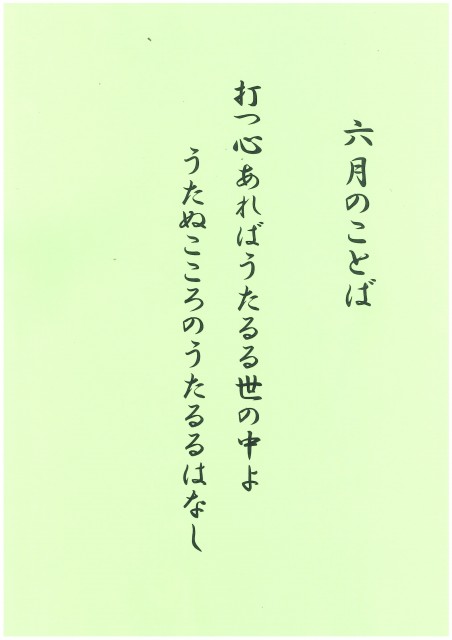 六月のことば
打つ心あればうたるる世の中よ
うたぬこころのうたるるはなし